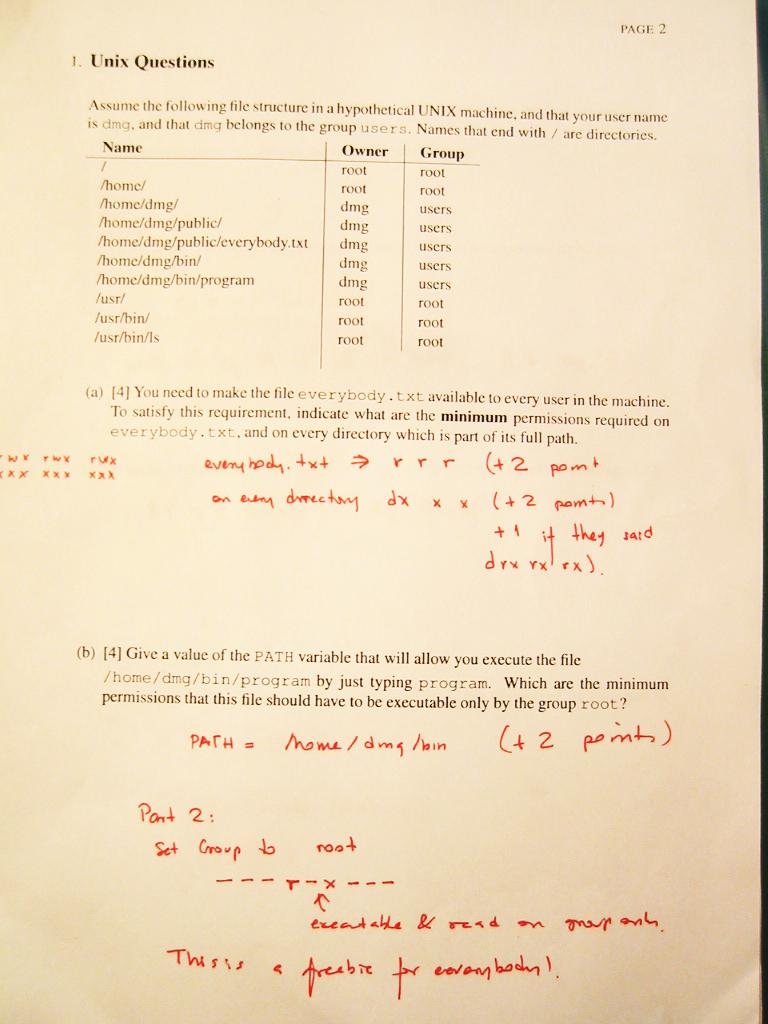 PAGE 2
1. Unix Questions
Assume the following file structure in a hypothetical UNIX machine, and that your user name
is dmg, and that dmg belongs to the group users. Names that end with / are directories.
Name Owner Group
/ root root
/home/ root root
/home/dmg/ dmg users
/home/dmg/public/ dmg users
/home/dmg/public/everybody.txt dmg users
/home/dmg/bin/ dmg users
/home/dmg/bin/program dmg users
/usr/ root root
/usr/bin/ root root
/usr/bin/ls root root
(a) [4] You need to make the file everybody.txt available to every user in the machine.
To satisfy this requirement, indicate what are the minimum permissions required on
everybody.txt, and on every directory which is part of its full path.
rwx rwx rwx everybody.txt ⇒ r r r (+2 point
xxx xxx xxx on every directory dx x x (+2 points)
+1 if they said
drx rx rx).
(b) [4] Give a value of the PATH variable that will allow you execute the file
/home/dmg/bin/program by just typing program. Which are the minimum
permissions that this file should have to be executable only by the group root?
PATH = /home/dmg/bin (+2 points)
Part 2:
Set Group to root
---r-x---
↑
executable & read on group only.
This is a freebie for everybody!.